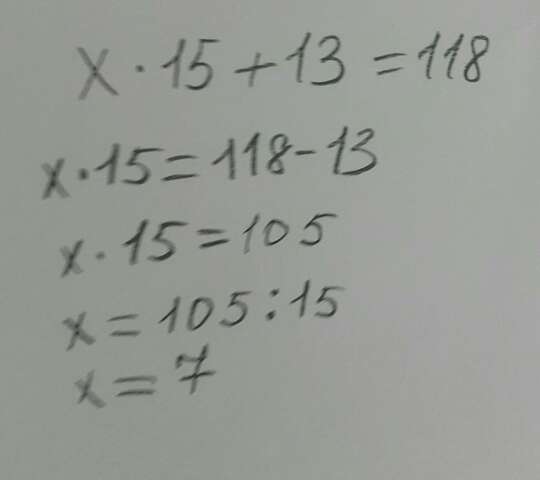 x · 15 + 13 = 118
x · 15 = 118 - 13
x · 15 = 105
x = 105 : 15
x = 7